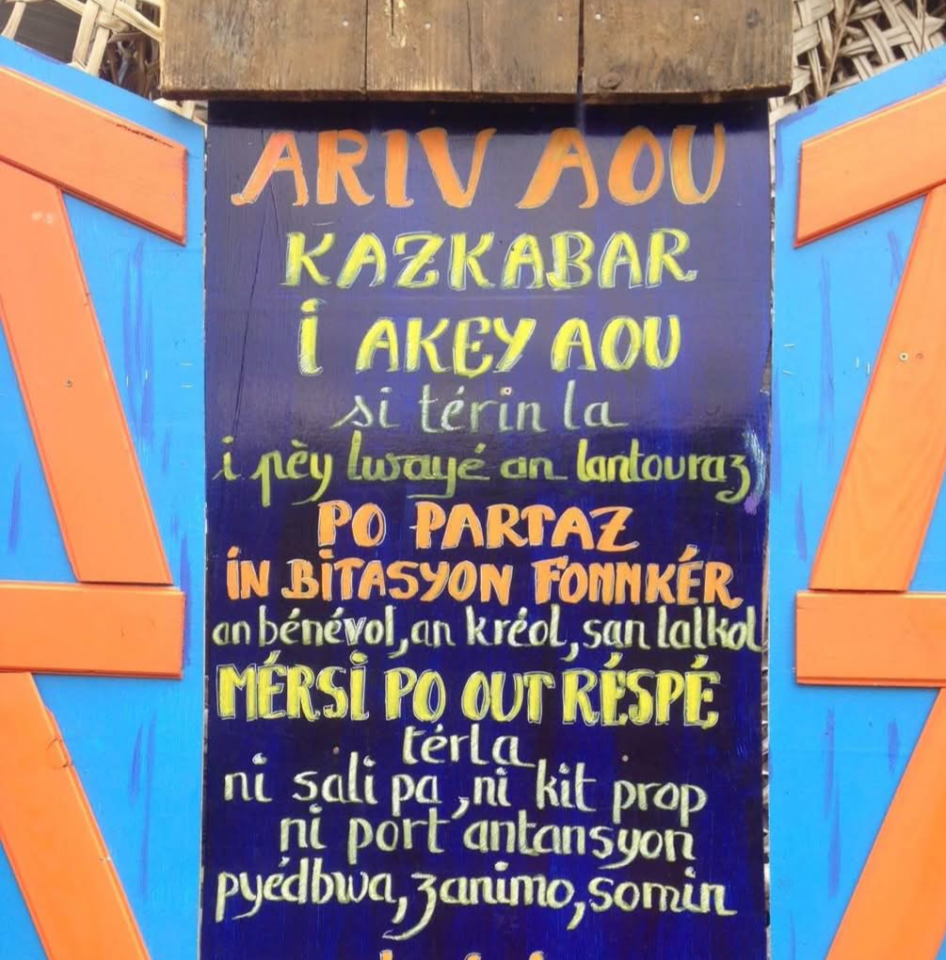 ARIV AOU
KAZKABAR
i AKEY AOU
si térin la
i pèy lwayé an lantouraz
PO PARTAZ
iN BiTASYON FONNKÉR
an bénévol, an kréol, san lalkol
MÉRSi PO OUT RÉSPÉ
térla
ni sali pa, ni kit prop
ni port antansyon
pyédbwa, zanimo, somin